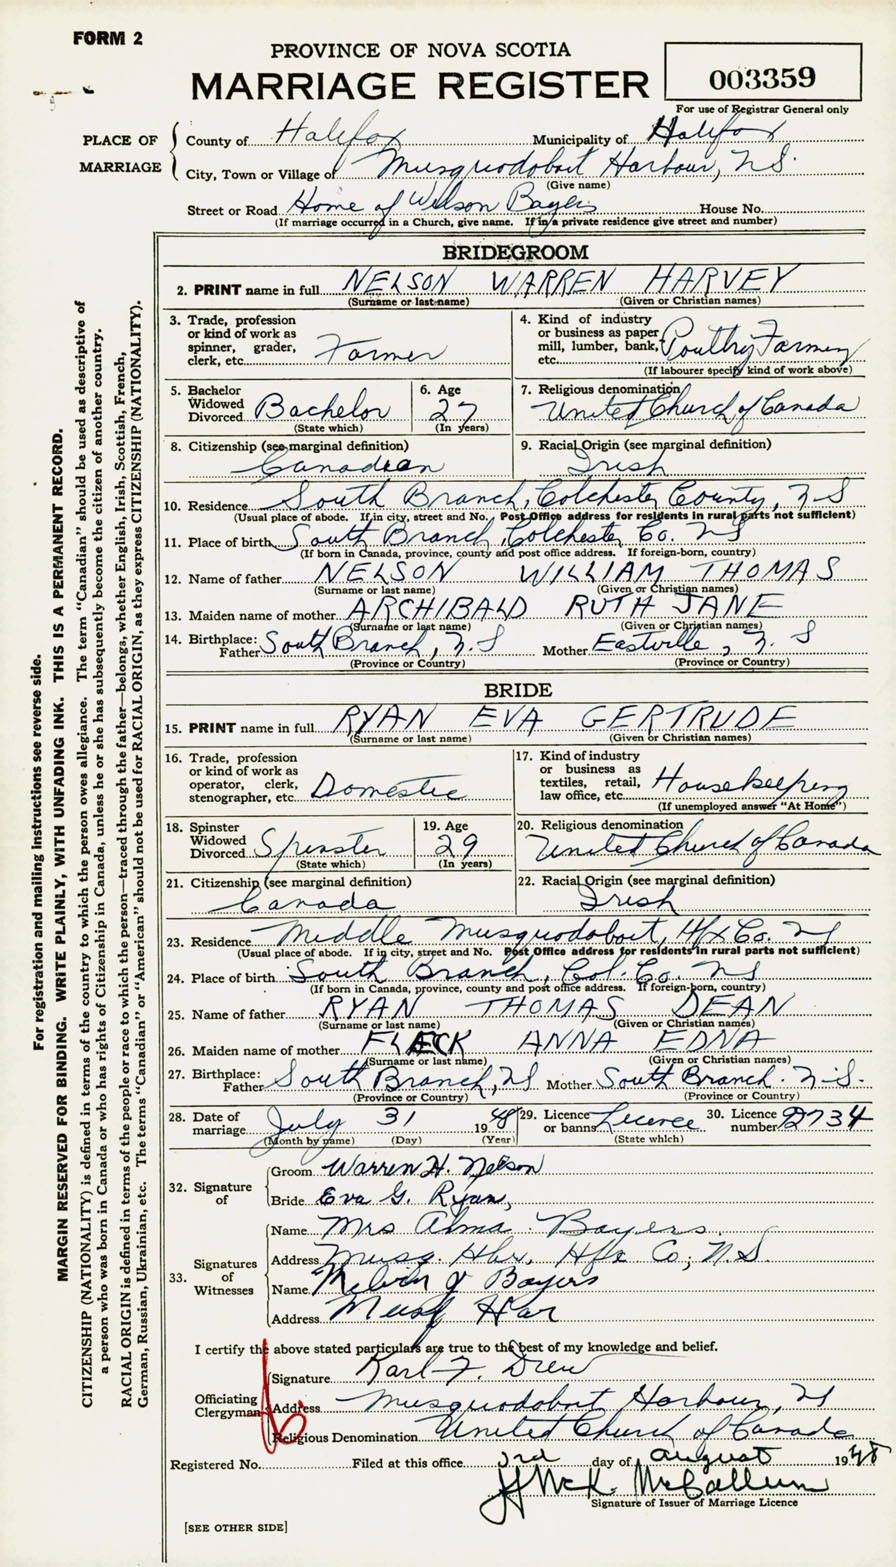 FORM 2
PROVINCE OF NOVA SCOTIA
MARRIAGE REGISTER
003359
For use of Registrar General only
PLACE OF MARRIAGE
County of Halifax Municipality of Halifax
City, Town or Village of Musquodoboit Harbour, N.S.
(Give name)
Street or Road Home of Wilson Bayers House No.
(If marriage occurred in a Church, give name. If in a private residence give street and number)
BRIDEGROOM
2. PRINT name in full NELSON WARREN HARVEY
(Surname or last name) (Given or Christian names)
3. Trade, profession or kind of work as spinner, grader, clerk, etc. Farmer
4. Kind of industry or business as paper mill, lumber, bank, etc. Poultry Farming
(If labourer specify kind of work above)
5. Bachelor Widowed Divorced Bachelor
(State which)
6. Age 27
(In years)
7. Religious denomination United Church of Canada
8. Citizenship (see marginal definition) Canadian
9. Racial Origin (see marginal definition) Irish
10. Residence South Branch, Colchester County, N S
(Usual place of abode. If in city, street and No. Post Office address for residents in rural parts not sufficient)
11. Place of birth South Branch, Colchester Co. N S
(If born in Canada, province, county and post office address. If foreign-born, country)
12. Name of father NELSON WILLIAM THOMAS
(Surname or last name) (Given or Christian names)
13. Maiden name of mother ARCHIBALD RUTH JANE
(Surname or last name) (Given or Christian names)
14. Birthplace: Father South Branch, N. S Mother Eastville, N. S
(Province or Country) (Province or Country)
BRIDE
15. PRINT name in full RYAN EVA GERTRUDE
(Surname or last name) (Given or Christian names)
16. Trade, profession or kind of work as operator, clerk, stenographer, etc. Domestic
17. Kind of industry or business as textiles, retail, law office, etc. Housekeeping
(If unemployed answer "At Home")
18. Spinster Widowed Divorced Spinster
(State which)
19. Age 29
(In years)
20. Religious denomination United Church of Canada
21. Citizenship (see marginal definition) Canada
22. Racial Origin (see marginal definition) Irish
23. Residence Middle Musquodoboit, Hfx Co. N S
(Usual place of abode. If in city, street and No. Post Office address for residents in rural parts not sufficient)
24. Place of birth South Branch, Col. Co. N S
(If born in Canada, province, county and post office address. If foreign-born, country)
25. Name of father RYAN THOMAS DEAN
(Surname or last name) (Given or Christian names)
26. Maiden name of mother FLECK ANNA EDNA
(Surname or last name) (Given or Christian names)
27. Birthplace: Father South Branch, NS Mother South Branch. N.S.
(Province or Country) (Province or Country)
28. Date of marriage July 31 1948
(Month by name) (Day) (Year)
29. Licence or banns Licence
(State which)
30. Licence number D734
32. Signature of
Groom Warren H. Nelson
Bride Eva G. Ryan,
33. Signatures of Witnesses
Name Mrs Alma Bayers
Address Musq. Hbr, Hfx Co, N.S.
Name Melvin Bayers
Address Musq Har
I certify the above stated particulars are true to the best of my knowledge and belief.
Officiating Clergyman
Signature Karl F. Drew
Address Musquodoboit Harbour, NS
Religious Denomination United Church of Canada
Registered No. Filed at this office 3rd day of August 1948
J McK. McCallum
Signature of Issuer of Marriage Licence
[SEE OTHER SIDE]
For registration and mailing instructions see reverse side.
MARGIN RESERVED FOR BINDING. WRITE PLAINLY, WITH UNFADING INK. THIS IS A PERMANENT RECORD.
CITIZENSHIP (NATIONALITY) is defined in terms of the country to which the person owes allegiance. The term "Canadian" should be used as descriptive of
a person who was born in Canada or who has rights of Citizenship in Canada, unless he or she has subsequently become the citizen of another country.
RACIAL ORIGIN is defined in terms of the people or race to which the person—traced through the father—belongs, whether English, Irish, Scottish, French,
German, Russian, Ukrainian, etc. The terms "Canadian" or "American" should not be used for RACIAL ORIGIN, as they express CITIZENSHIP (NATIONALITY).